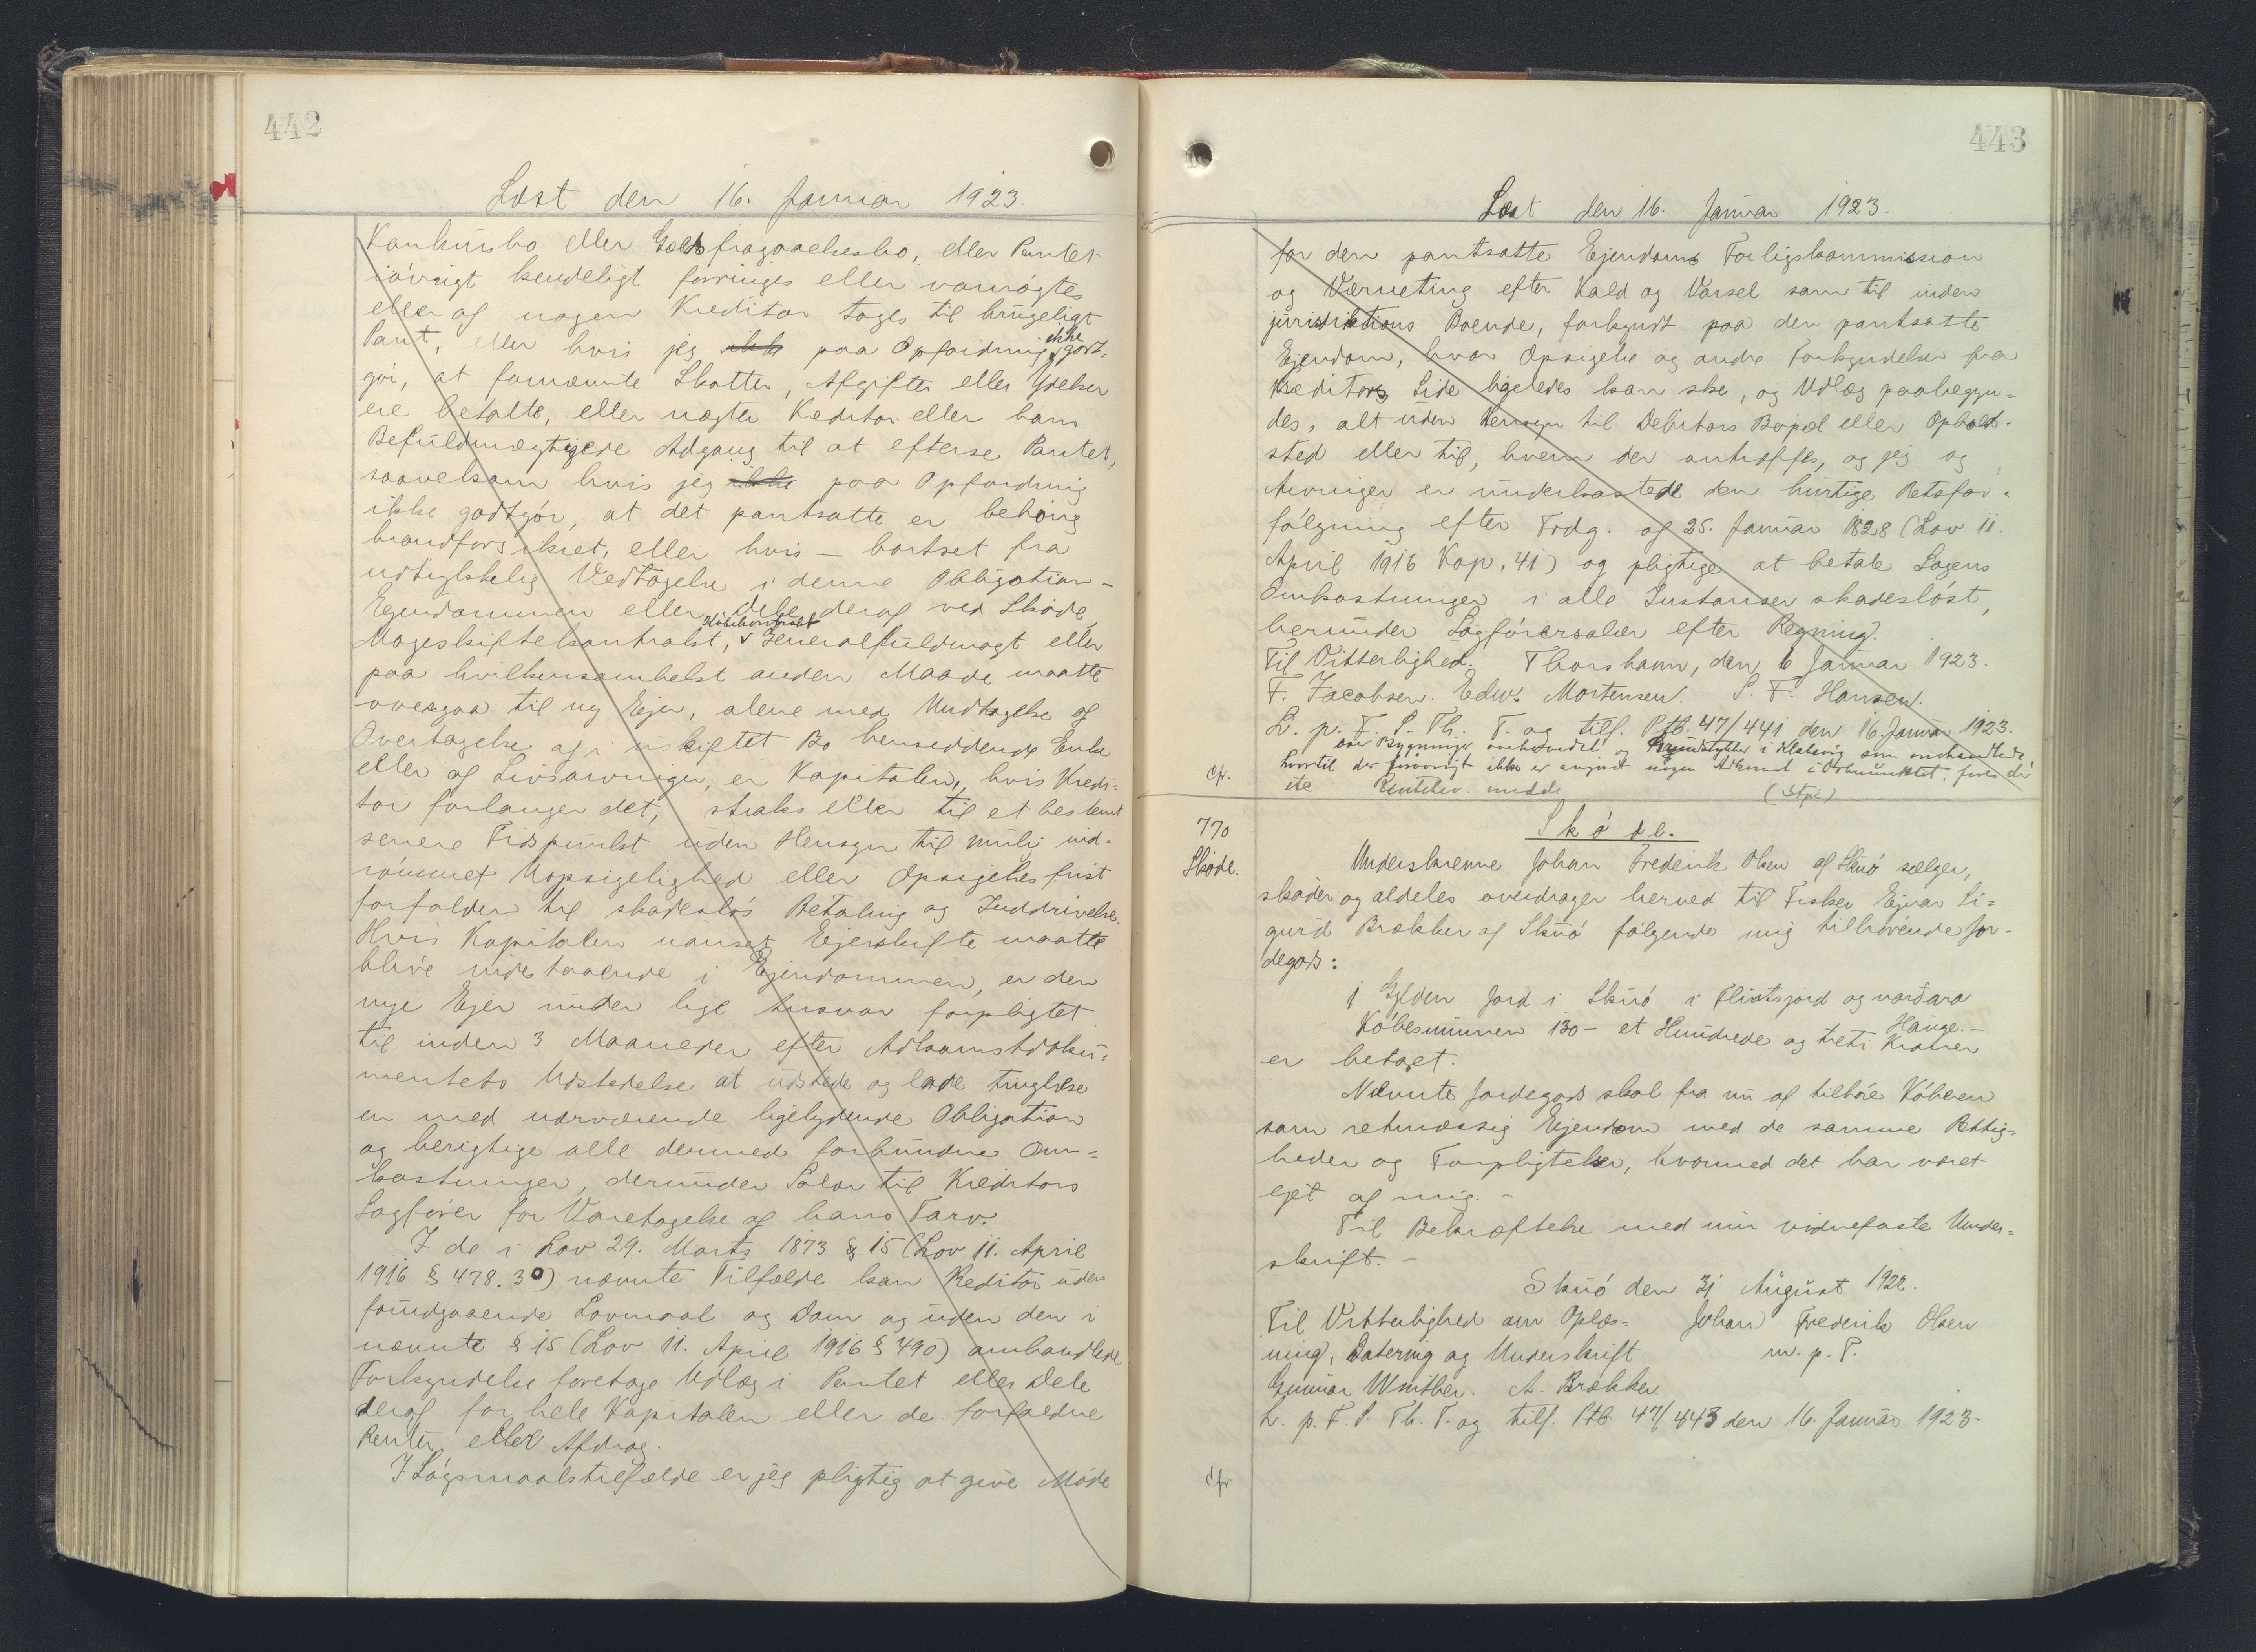 442
Læst den 16. Januar 1923.
Konkursbo eller Gældsfragaaelsesbo, eller Pantet
iøvrigt kendeligt forringes eller vanrøgtes
eller af nogen Kreditor tages til brugeligt
Pant, eller hvis jeg ikke paa Opfordring ikke godt-
gør, at fornævnte Skatter, Afgifter eller Ydelser
ere betalte, eller nægter Kreditor eller hans
Befuldmægtigede Adgang til at efterse Pantet,
saavelsom hvis jeg ikke paa Opfordring
ikke godtgør, at det pantsatte er behørig
brandforsikret, eller hvis – bortset fra
udtrykkelig Vedtagelse i denne Obligation –
Ejendommen eller Dele deraf ved Skøde,
Købekontrakt
Mageskiftekontrakt, v Generalfuldmagt eller
paa hvilkensomhelst anden Maade maatte
overgaa til ny Ejer, alene med Undtagelse af
Overtagelse af i uskiftet Bo hensiddende Enke
eller af Livsarvinger, er Kapitalen, hvis Kredi-
tor forlanger det, straks eller til et bestemt
senere Tidspunkt uden Hensyn til mulig ind-
rømmet Uopsigelighed eller Opsigelsesfrist
forfalden til skadesløs Betaling og Inddrivelse.
Hvis Kapitalen uanset Ejerskifte maatte
blive indestaaende i Ejendommen, er den
nye Ejer under lige Ansvar forpligtet
til inden 3 Maaneder efter Adkomstdoku-
mentets Udstedelse at udstede og lade tinglæse
en med nærværende ligelydende Obligation
og berigtige alle dermed forbundne Om-
kostninger, derunder Salær til Kreditors
Sagfører for Varetagelse af hans Tarv.
I de i Lov 29. Marts 1873 § 15 (Lov 11. April
1916 § 478.3⁰) nævnte Tilfælde kan Kreditor uden
foundgaaende Lovmaal og Dom og uden den i
nævnte § 15 (Lov 11. April 1916 § 490) omhandlede
Forkyndelse foretage Udlæg i Pantet eller Dele
deraf for hele Kapitalen eller de forfaldne
Renter eller Afdrag.
I Søgsmaalstilfælde er jeg pligtig at give Møde
443
Læst den 16. Januar 1923.
for den pantsatte Ejendoms Forligskommission
og Værneting efter Kald og Varsel som til inden
jurisdiktions Boende, forkyndt paa den pantsatte
Ejendom, hvor Opsigelse og andre Forkyndelser fra
Kreditors Side ligeledes kan ske, og Udlæg paabegyn-
des, alt uden Hensyn til Debitors Bopæl eller Opholds-
sted eller til, hvem der antræffes, og jeg og
Arvinger er underkastede den hurtige Retsfor-
følgning efter Frdg. af 25. Januar 1828 (Lov 11.
April 1916 Kap. 41) og pligtige at betale Sagens
Omkostninger i alle Instanser skadesløst,
herunder Sagførersalær efter Regning.
Til Vitterlighed. Thorshavn, den 6 Januar 1923.
F. Jacobsen. Edw. Mortensen. S. F. Hansen.
L. p. F. S. Th. T. og tilf. Ptb. 47/441 den 16. Januar 1923.
hvortil der iøvrigt ikke er
cfr.
770
Skøde.
Skøde.
Underskrevne Johan Frederik Olsen af Skuø sælger,
skøder og aldeles overdrager herved til Fisker Ejnar Si-
gurd Brekker af Skuø følgende mig tilhørende Jor-
degods:
1 Gylden Jord i Skuø i Flistsjord og varðara
Hauge. –
Købesummen 130 – et Hundrede og treti Kroner
er betalt.
Nævnte Jordegods skal fra nu af tilhøre Køberen
som retmæssig Ejendom med de samme Rettig-
heder og Forpligtelser, hvormed det har været
ejet af mig. –
Til Bekræftelse med min vidnefaste Under-
skrift. –
Skuø den 31 August 1922.
Til Vitterlighed om Oplæs- Johan Frederik Olsen
ning, Datering og Underskrift: m. p. P.
Gunnar Winther. A. Brekker
L. p. F. S. Th. T. og tilf. Ptb 47/443 den 16. Januar 1923.
cfr